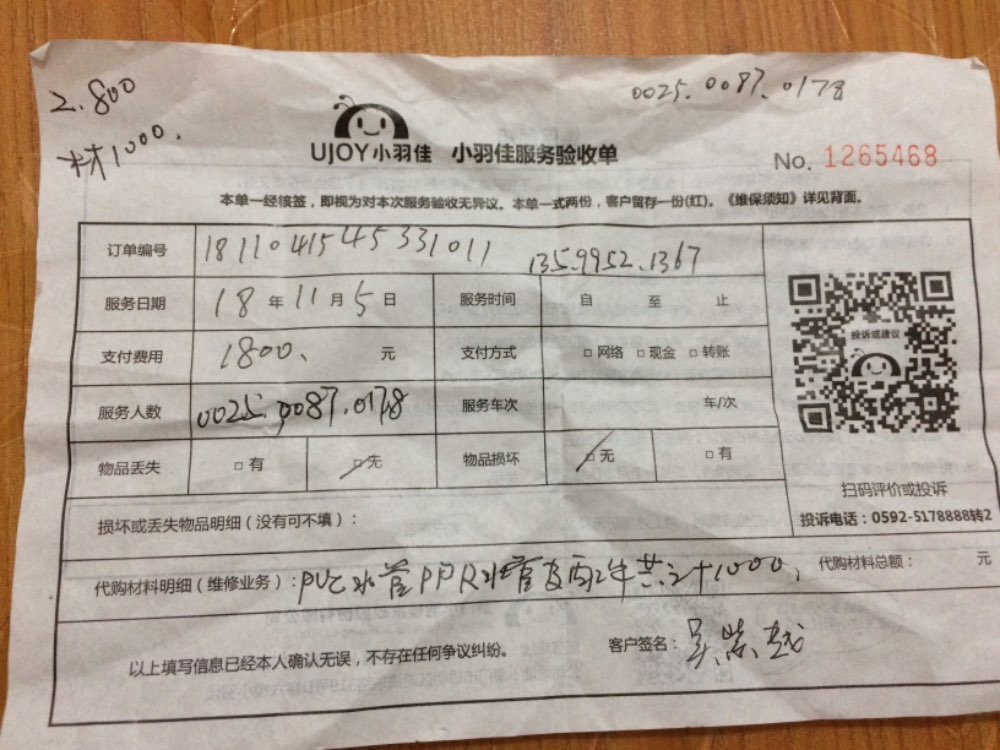 2.800
材1000.
0025.0087.0178
UJOY小羽佳 小羽佳服务验收单
No. 1265468
本单一经核签，即视为对本次服务验收无异议。本单一式两份，客户留存一份(红)。《维保须知》详见背面。
订单编号 1811041545331011 135.9952.1367
服务日期 18 年 11 月 5 日 服务时间 自 至 止
支付费用 1800、 元 支付方式 □ 网络 □ 现金 □ 转账
服务人数 0025.0087.0178 服务车次 车/次
物品丢失 □ 有 □ 无 物品损坏 □ 无 □ 有
投诉或建议
扫码评价或投诉
投诉电话：0592-5178888转2
损坏或丢失物品明细（没有可不填）：
代购材料明细（维修业务）：PVC水管PPR水管及配件共计1000, 代购材料总额： 元
以上填写信息已经本人确认无误，不存在任何争议纠纷。 客户签名：吴紫越